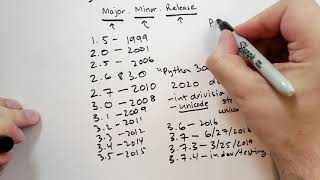 Major. Minor. Release
P
1.5 - 1999
2.0 - 2001
2.5 - 2006
2.6 & 3.0
2.7 - 2010
3.0 - 2008
3.1 - 2009
3.2 - 2011
3.3 - 2012
3.4 - 2014
3.5 - 2015
"Python 30
2020
- int division
- unicode str
3.6 - 2016
3.7 - 6/27/2018
3.7.3 - 3/25/2019
3.7.4 - in dev/testing